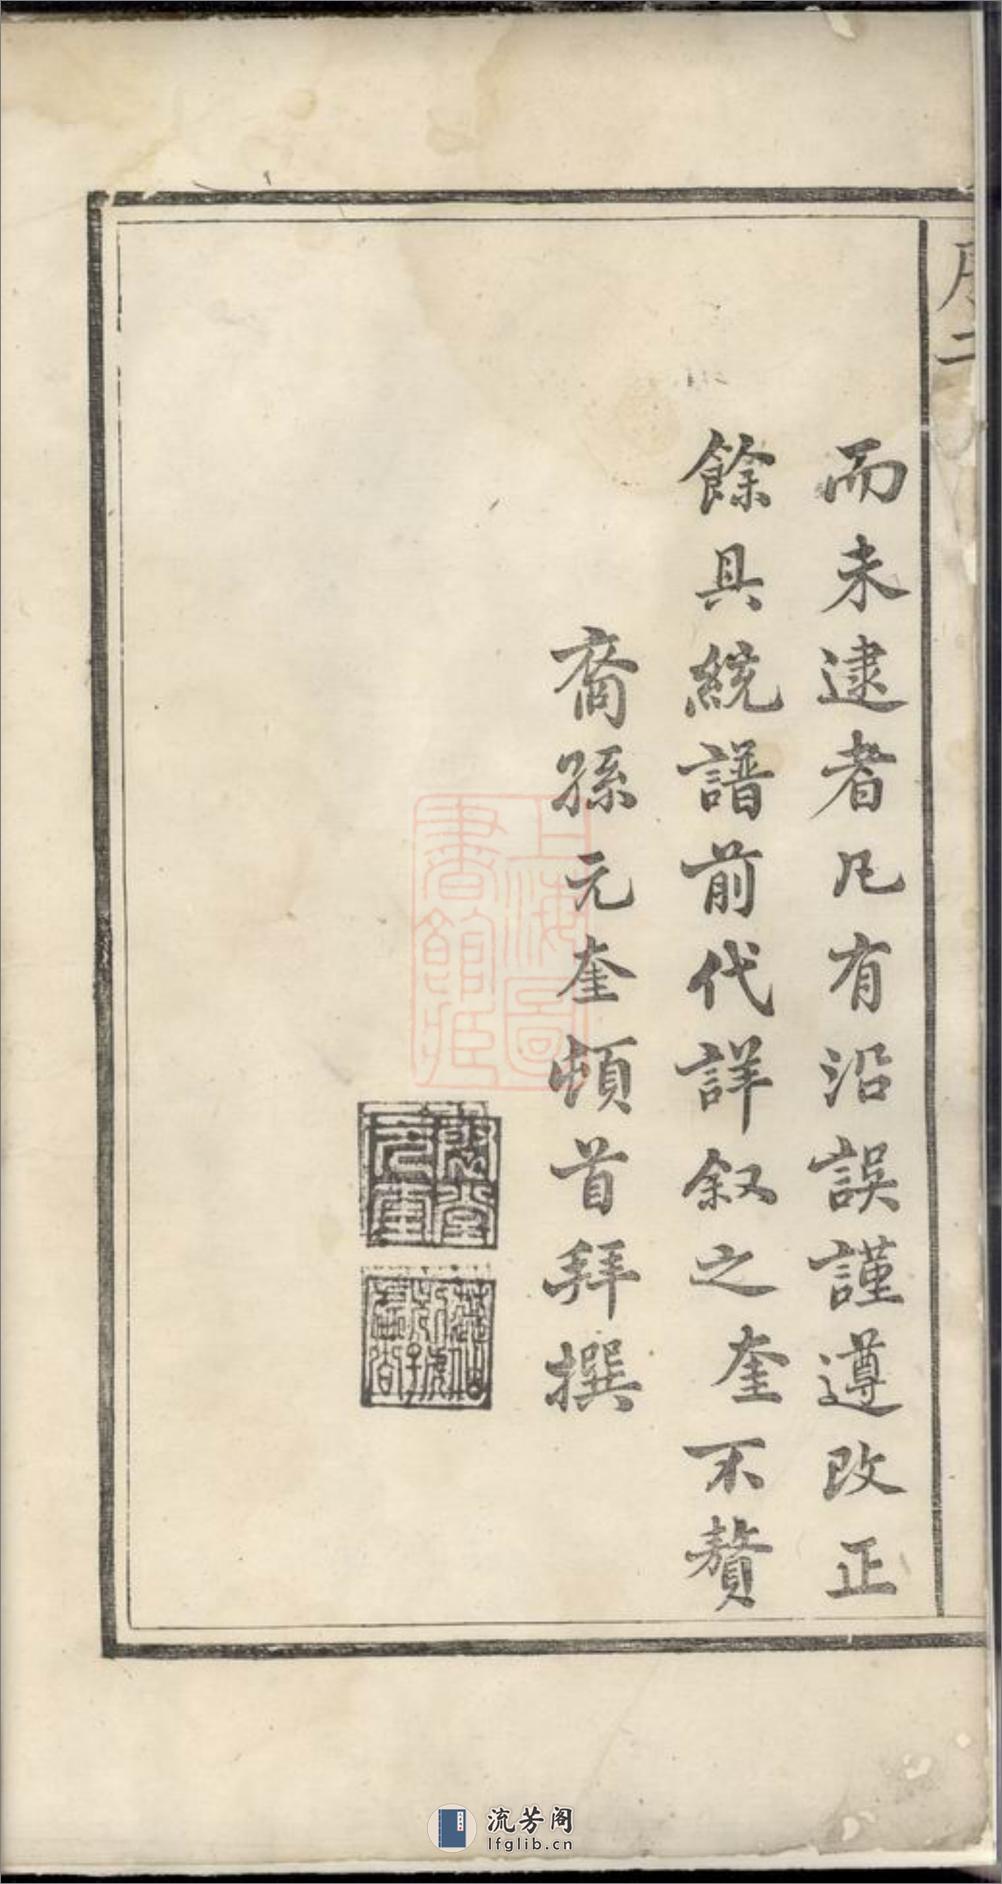 序二
而未逮者凡有沿誤謹遵改正
餘具統譜前代詳叙之奎不贅
裔孫元奎頓首拜撰
上海圖
書館藏
流芳阁
lfglib.cn